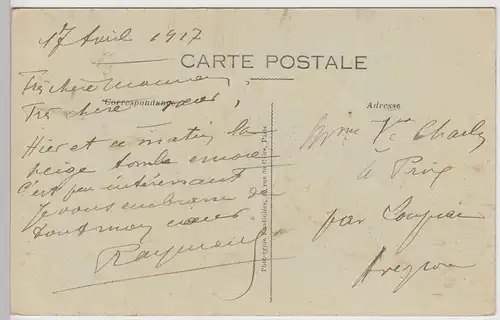 17 Avril 1917
CARTE POSTALE
Correspondance
Très chère Maman,
Très chère sœur,
Hier et ce matin la
neige tombe encore
C'est peu intéressant
Je vous embrasse de
tout mon cœur
Raymond
Adresse
Mme Vve Charly
à Prix
par
Aveyron